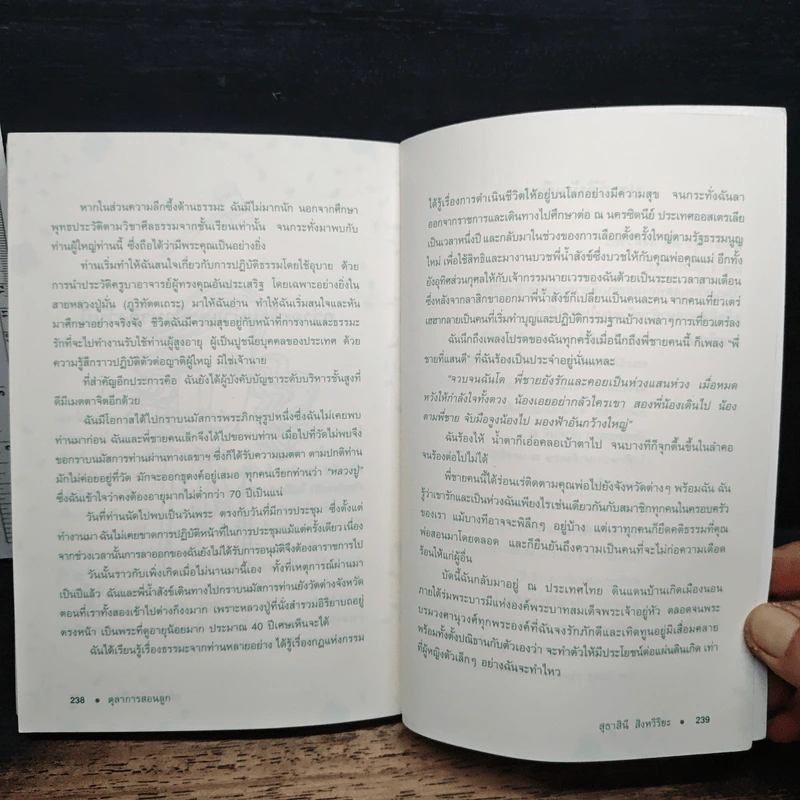 หากในส่วนความลึกซึ้งด้านธรรมะ ฉันมีไม่มากนัก นอกจากศึกษา
พุทธประวัติตามวิชาศีลธรรมจากชั้นเรียนเท่านั้น จนกระทั่งมาพบกับ
ท่านผู้ใหญ่ท่านนี้ ซึ่งถือได้ว่ามีพระคุณเป็นอย่างยิ่ง
ท่านเริ่มทำให้ฉันสนใจเกี่ยวกับการปฏิบัติธรรมโดยใช้อุบาย ด้วย
การนำประวัติครูบาอาจารย์ผู้ทรงคุณอันประเสริฐ โดยเฉพาะอย่างยิ่งใน
สายหลวงปู่มั่น (ภูริทัตตเถระ) มาให้ฉันอ่าน ทำให้ฉันเริ่มสนใจและหัน
มาศึกษาอย่างจริงจัง ชีวิตฉันมีความสุขอยู่กับหน้าที่การงานและธรรมะ
รักที่จะไปทำงานรับใช้ท่านผู้สูงอายุ ผู้เป็นปูชนียบุคคลของประเทศ ด้วย
ความรู้สึกราวปฏิบัติตัวต่อญาติผู้ใหญ่ มิใช่เจ้านาย
ที่สำคัญอีกประการคือ ฉันยังได้ผู้บังคับบัญชาระดับบริหารชั้นสูงที่
ดีมีเมตตาจิตอีกด้วย
ฉันมีโอกาสได้ไปกราบนมัสการพระภิกษุรูปหนึ่งซึ่งฉันไม่เคยพบ
ท่านมาก่อน ฉันและพี่ชายคนเล็กจึงได้ไปขอพบท่าน เมื่อไปที่วัดไม่พบจึง
ขอกราบนมัสการท่านผ่านทางเลขาฯ ซึ่งก็ได้รับความเมตตา ตามปกติท่าน
มักไม่ค่อยอยู่ที่วัด มักจะออกธุดงค์อยู่เสมอ ทุกคนเรียกท่านว่า "หลวงปู่"
ซึ่งฉันเข้าใจว่าคงต้องอายุมากไม่ต่ำกว่า 70 ปีเป็นแน่
วันที่ท่านนัดไปพบเป็นวันพระ ตรงกับวันที่มีการประชุม ซึ่งตั้งแต่
ทำงานมา ฉันไม่เคยขาดการปฏิบัติหน้าที่ในการประชุมแม้แต่ครั้งเดียว เนื่อง
จากช่วงเวลานั้นการลาออกของฉันยังไม่ได้รับการอนุมัติจึงต้องลาราชการไป
วันนั้นราวกับเพิ่งเกิดเมื่อไม่นานมานี้เอง ทั้งที่เหตุการณ์ผ่านมา
เป็นปีแล้ว ฉันและพี่น้ำสังข์เดินทางไปกราบนมัสการท่านยังวัดต่างจังหวัด
ตอนที่เราทั้งสองเข้าไปต่างก็งงมาก เพราะหลวงปู่ที่นั่งสำรวมอิริยาบถอยู่
ตรงหน้า เป็นพระที่ดูอายุน้อยมาก ประมาณ 40 ปีเศษเห็นจะได้
ฉันได้เรียนรู้เรื่องธรรมะจากท่านหลายอย่าง ได้รู้เรื่องกฎแห่งกรรม
238 • ตุลาการสอนลูก
ได้รู้เรื่องการดำเนินชีวิตให้อยู่บนโลกอย่างมีความสุข จนกระทั่งฉันลา
ออกจากราชการและเดินทางไปศึกษาต่อ ณ นครซิดนีย์ ประเทศออสเตรเลีย
เป็นเวลาหนึ่งปี และกลับมาในช่วงของการเลือกตั้งครั้งใหญ่ตามรัฐธรรมนูญ
ใหม่ เพื่อใช้สิทธิและมางานบวชพี่น้ำสังข์ซึ่งบวชให้กับคุณพ่อคุณแม่ อีกทั้ง
ยังอุทิศส่วนกุศลให้กับเจ้ากรรมนายเวรของฉันด้วยเป็นระยะเวลาสามเดือน
ซึ่งหลังจากลาสิกขาออกมาพี่น้ำสังข์ก็เปลี่ยนเป็นคนละคน จากคนเที่ยวเตร่
เฮฮากลายเป็นคนที่เริ่มทำบุญและปฏิบัติกรรมฐานบ้างเพลาๆการเที่ยวเตร่ลง
ฉันนึกถึงเพลงโปรดของฉันทุกครั้งเมื่อนึกถึงพี่ชายคนนี้ ก็เพลง "พี่
ชายที่แสนดี" ที่ฉันร้องเป็นประจำอยู่นั่นแหละ
"จวบจนฉันโต พี่ชายยังรักและคอยเป็นห่วงแสนห่วง เมื่อหมด
หวังให้กำลังใจทั้งดวง น้องเอยอย่ากลัวใครเขา สองพี่น้องเดินไป น้อง
ตามพี่ชาย จับมือจูงน้องไป มองฟ้าอันกว้างใหญ่"
ฉันร้องไห้ น้ำตาก็เอ่อคลอเบ้าตาไป จนบางทีก็จุกตื้นขึ้นในลำคอ
จนร้องต่อไปไม่ได้
พี่ชายคนนี้ได้ร่อนเร่ติดตามคุณพ่อไปยังจังหวัดต่างๆ พร้อมฉัน ฉัน
รู้ว่าเขารักและเป็นห่วงฉันเพียงไรเช่นเดียวกันกับสมาชิกทุกคนในครอบครัว
ของเรา แม้บางทีอาจจะพิลึกๆ อยู่บ้าง แต่เราทุกคนก็ยึดคติธรรมที่คุณ
พ่อสอนมาโดยตลอด และก็ยืนยันถึงความเป็นคนที่จะไม่ก่อความเดือด
ร้อนให้แก่ผู้อื่น
บัดนี้ฉันกลับมาอยู่ ณ ประเทศไทย ดินแดนบ้านเกิดเมืองนอน
ภายใต้ร่มพระบารมีแห่งองค์พระบาทสมเด็จพระเจ้าอยู่หัว ตลอดจนพระ
บรมวงศานุวงศ์ทุกพระองค์ที่ฉันจงรักภักดีและเทิดทูนอยู่มิเสื่อมคลาย
พร้อมทั้งตั้งปณิธานกับตัวเองว่า จะทำตัวให้มีประโยชน์ต่อแผ่นดินเกิด เท่า
ที่ผู้หญิงตัวเล็กๆ อย่างฉันจะทำไหว
สุธาสินี สิงหวีริยะ • 239